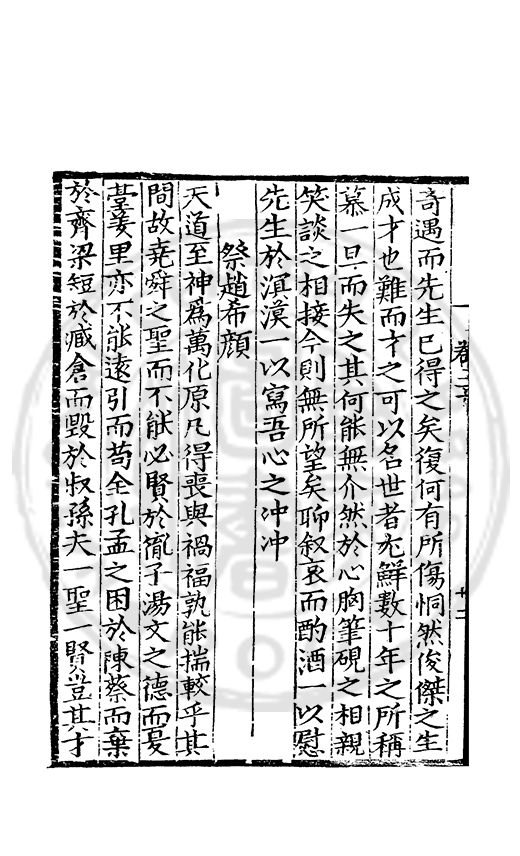 奇遇而先生已得之矣復何有所傷恫然俊傑之生
成才也難而才之可以名世者尤鮮數十年之所稱
慕一旦而失之其何能無介然於心胸筆硯之相親
笑談之相接今則無所望矣聊叙哀而酌酒一以慰
先生於溟漠一以寫吾心之冲冲
祭趙希顔
天道至神爲萬化原凡得喪與禍福孰能揣較乎其
間故堯舜之聖而不能必賢於胤子湯文之德而夏
臺羑里亦不能遠引而苟全孔孟之困於陳蔡而棄
於齊梁短於臧倉而毀於叔孫夫一聖一賢豈其才